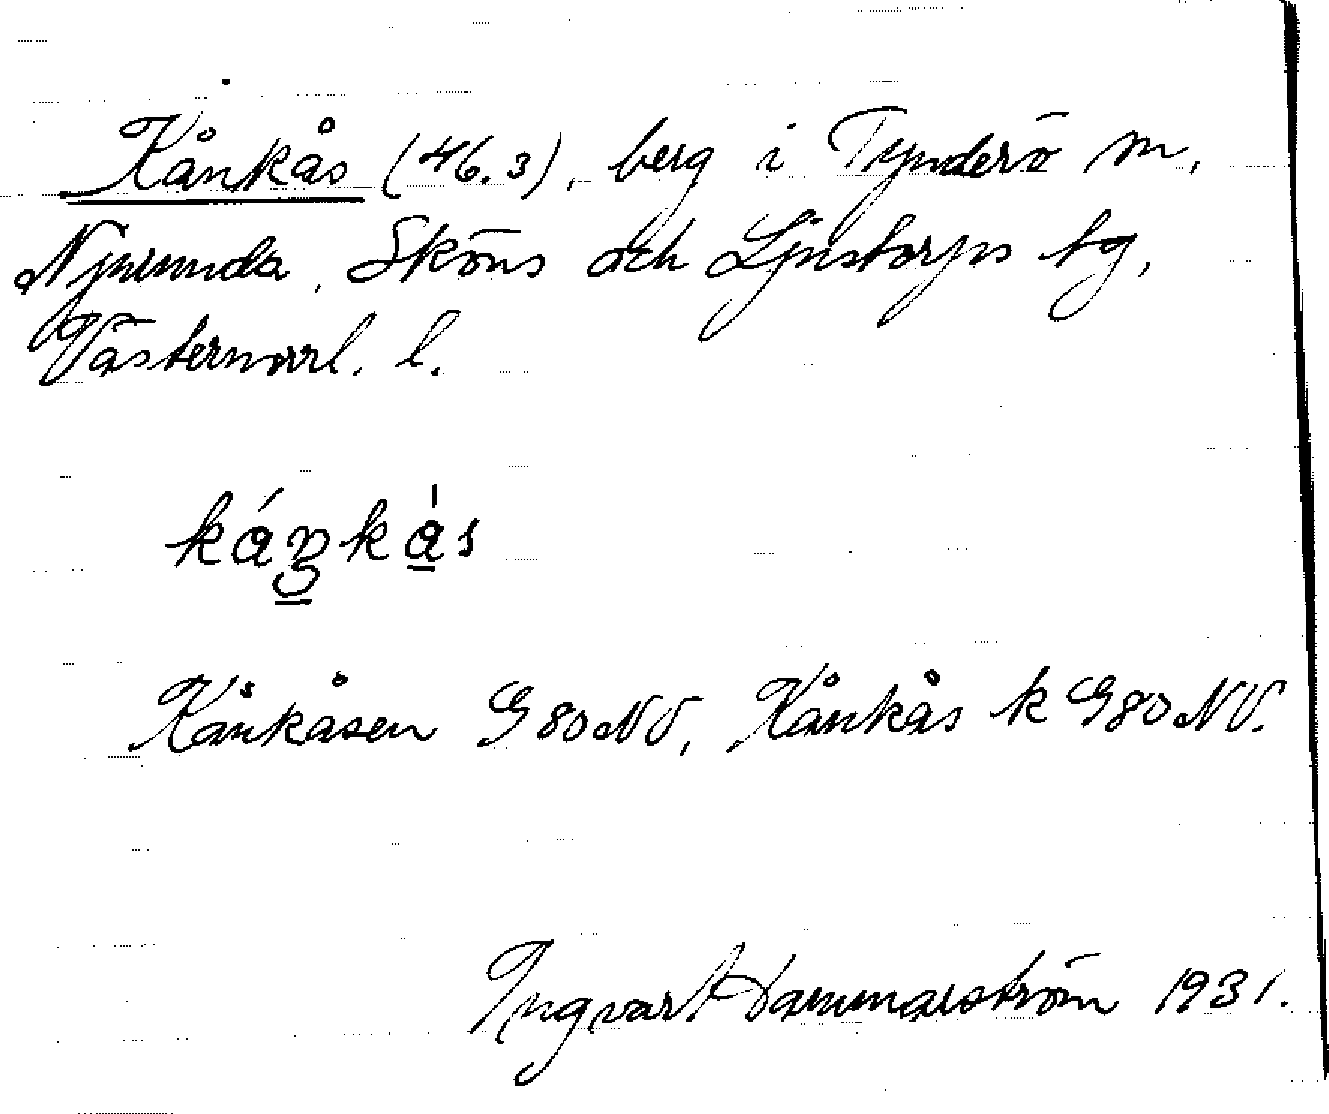 Kånkås (46.3), berg i Tynderö sn,
Njurunda, Sköns och Ljustorps tg,
Västernorrl. l.
káŋkås
Kånkåsen G80NV, Kånkås k G80NV.
Ingvar Hammarström 1931.